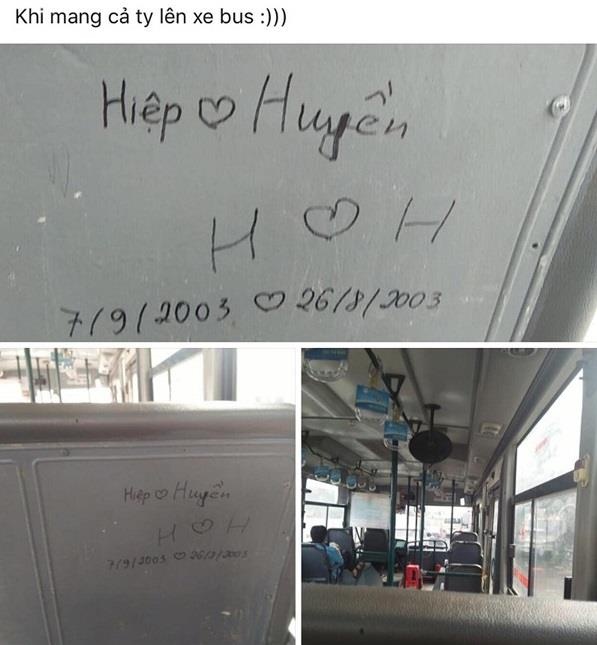 Khi mang cả ty lên xe bus :)))
Hiệp ♡ Huyền
H ♡ H
7/9/2003 ♡ 26/8/2003
Hiệp ♡ Huyền
H ♡ H
7/9/2003 ♡ 26/8/2003